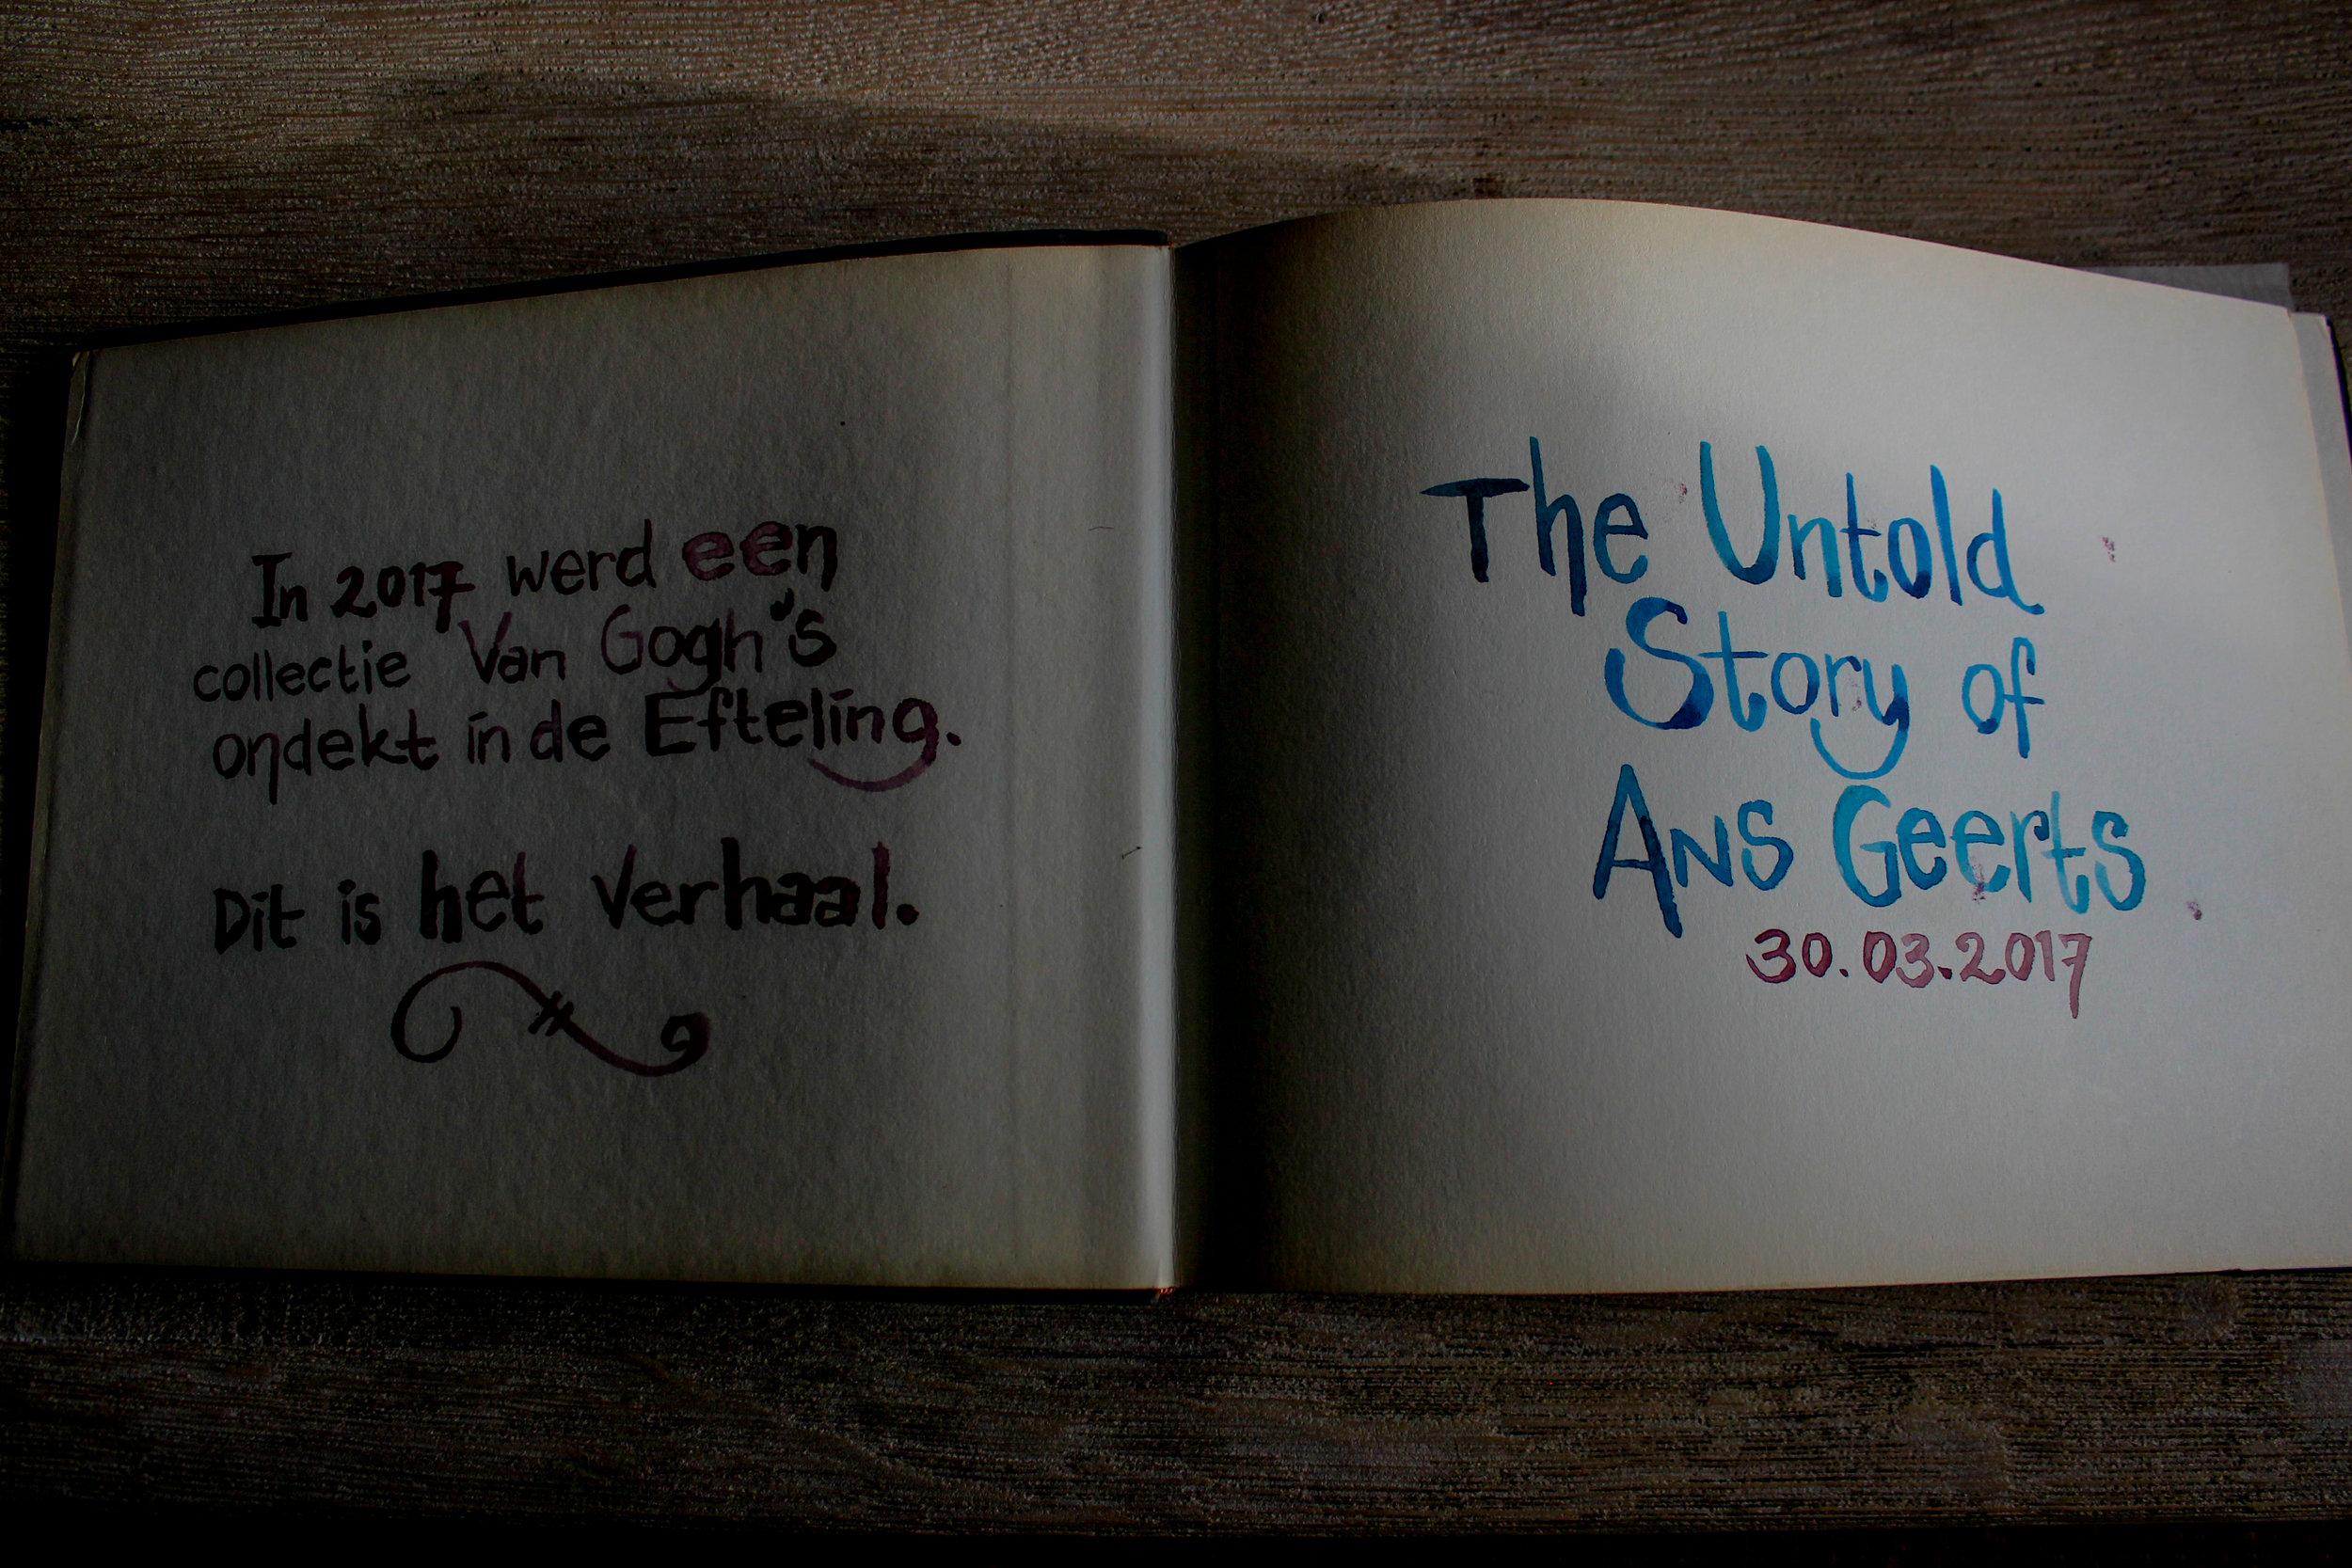 In 2017 werd een
collectie Van Gogh's
ondekt in de Efteling.
Dit is het verhaal.
The Untold
Story of
Ans Geerts
30.03.2017